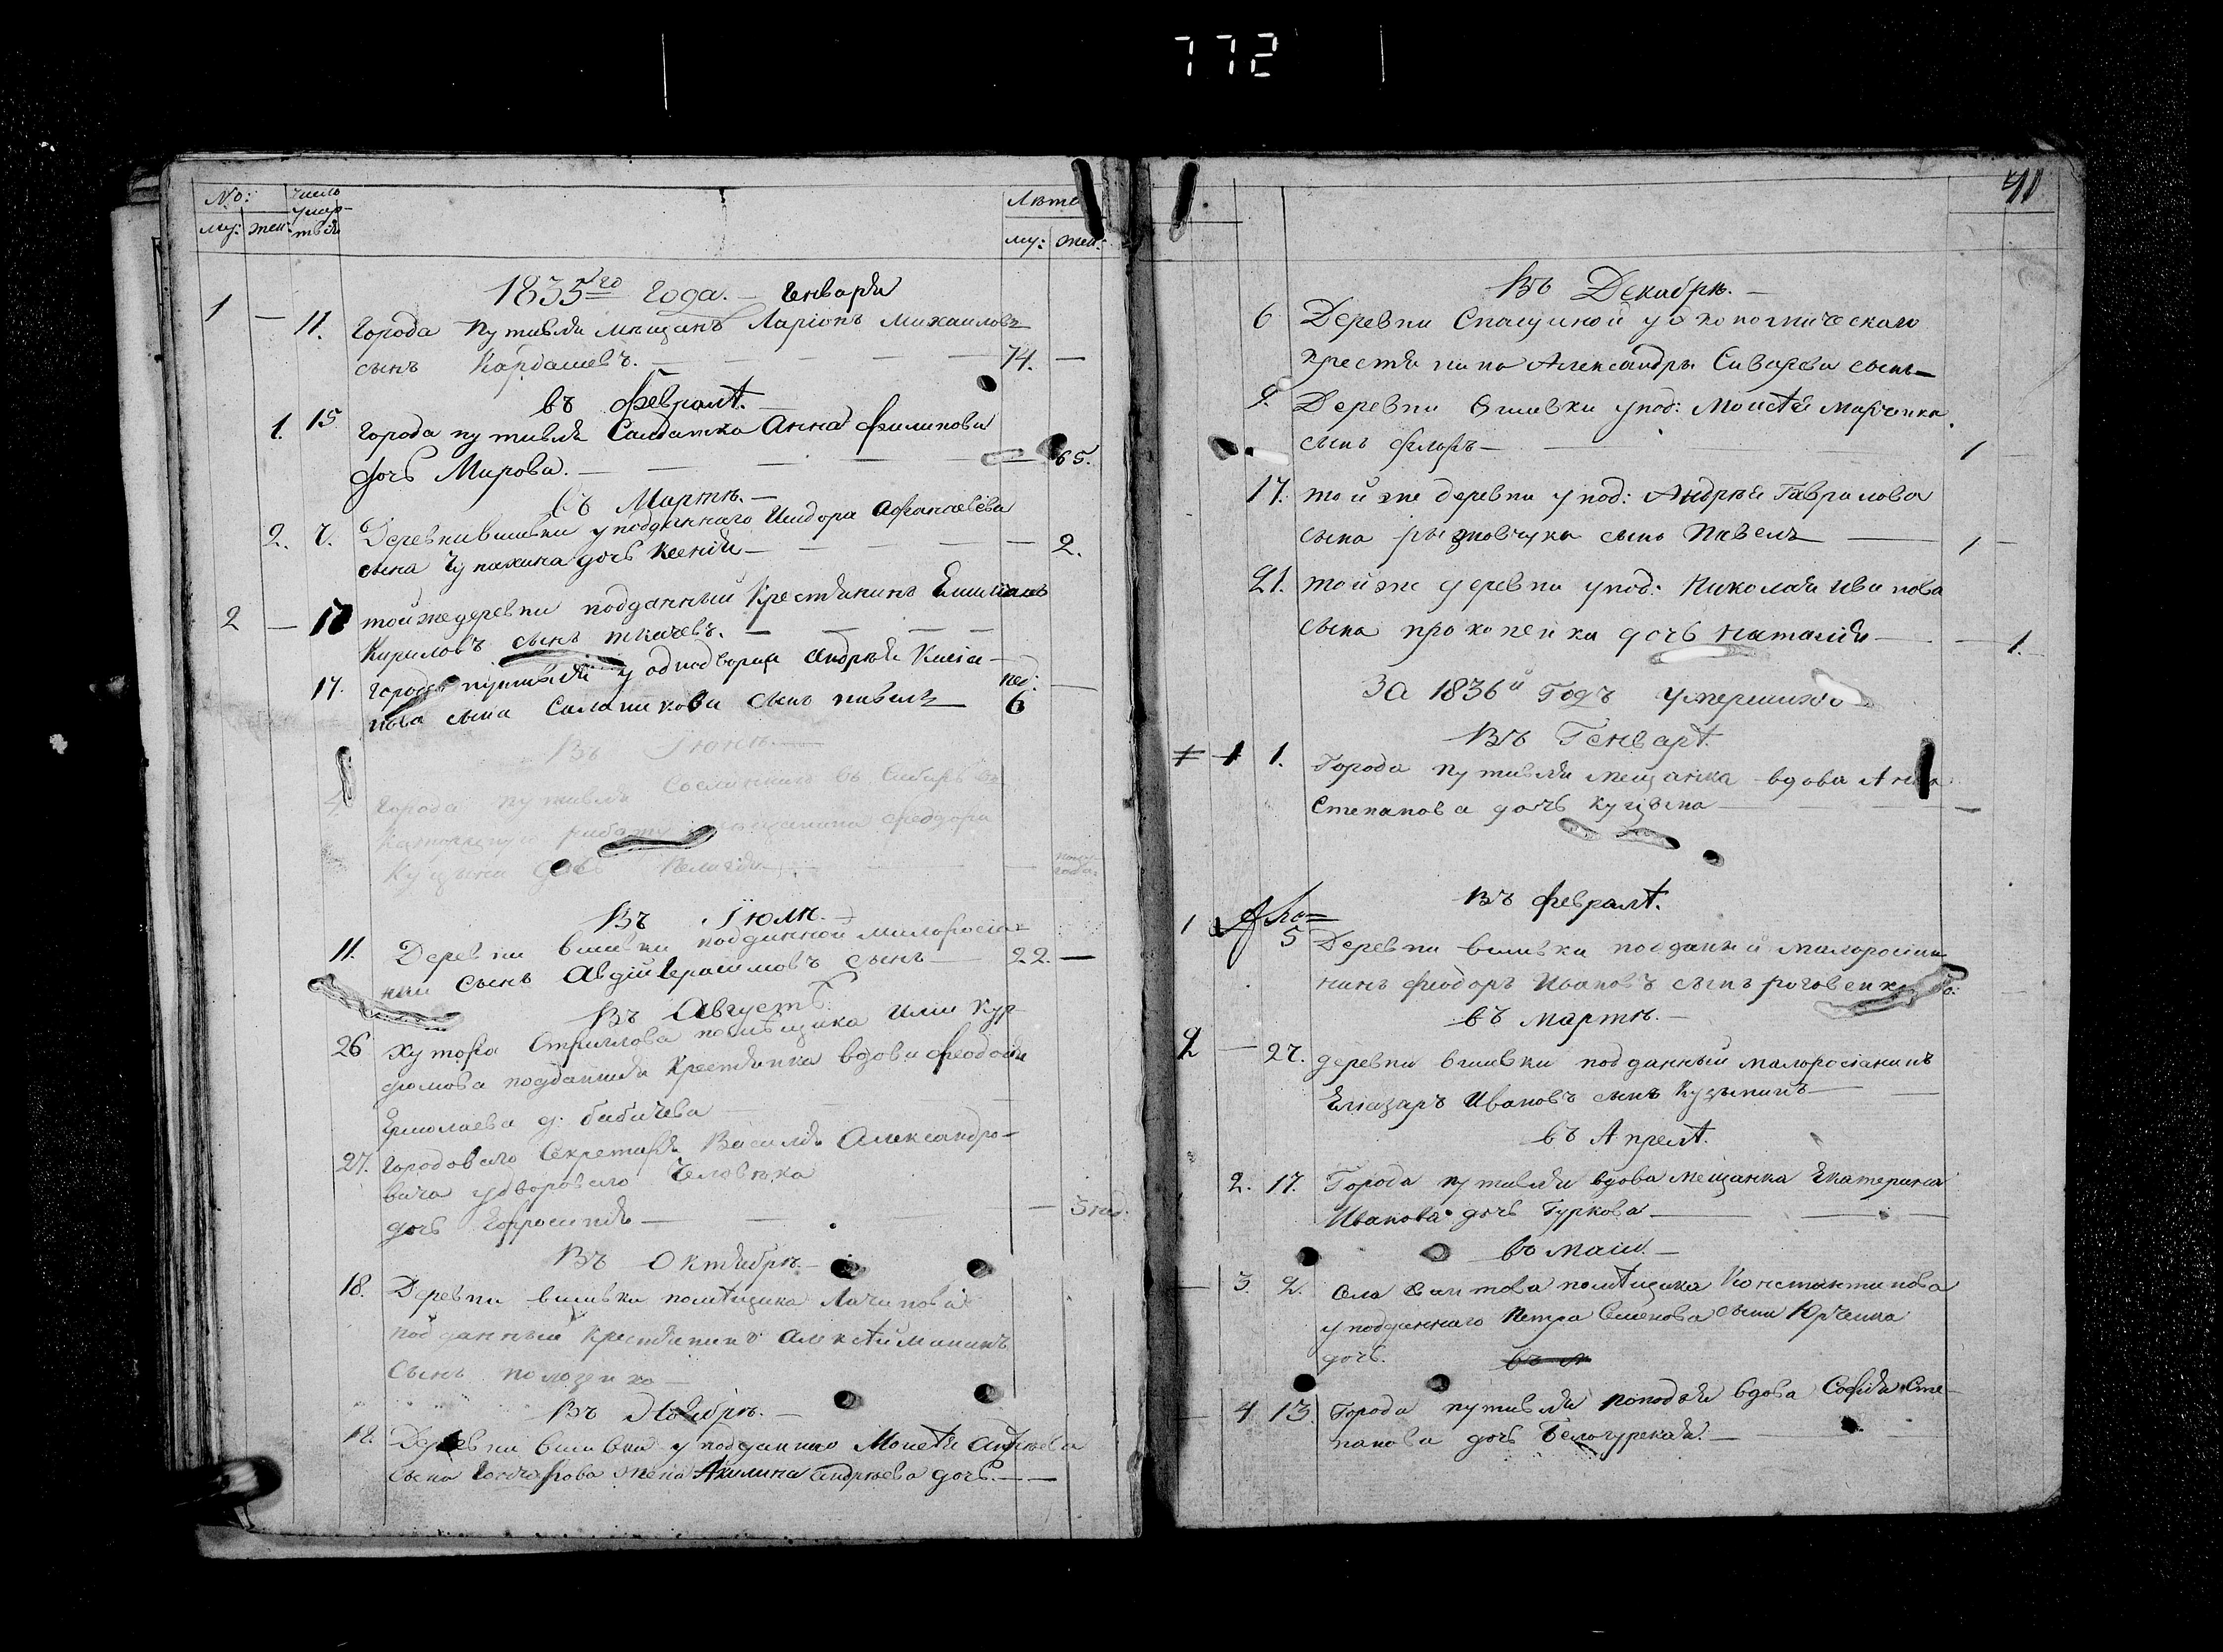 772
No: число умер-
му: жен: твія
Лѣта
му: жен:
1835го Года. Генваря
1 — 11. Города Путивля мѣщанъ Ларіонъ Михаиловъ
сынъ Кардашевъ. — 74. —
въ Февралѣ.
1. 15 Города путивля Салдатка Анна Филипова
дочь Мирова. — 65.
въ Мартѣ. —
2. Деревни вшивки у подданнаго Исидора Афанасьева
сына дочь Ксенія — — 2.
2 — тойже деревни подданный Крестянинъ Емилианъ
Кириловъ сынъ ткачевъ. —
17. города путивля у однодворца Андрѣя Касіа- нед: —
нова сына Салатикова сынъ павелъ 6
Въ Іюнѣ.
4. города путивля Сосланнаго въ Сибирь въ
каторжную работу мещанина Феодора
Куцына дочь Пелагія —
Въ Іюлѣ. —
11. Деревни вшивки подданной малоросія-
нин сынъ Авдій Герасимовъ сынъ — 22. —
Въ Августѣ
26 хутора Стрилова помѣщика Иліи Кур
дюмова подданная Крестянка вдова Феодосія
Ермолаева д. бабичева
27. городоваго Секретаря Василія Александро-
вича у двороваго Человѣка
дочь Ефросинія — — 3 нед.
Въ Октябрѣ. —
18. Деревни вшивки помѣщика Лачинова
подданный крестянинъ Алексѣй
Сынъ полозенко —
Въ Ноябрѣ. —
12. Деревни вшивки у подданнаго Моисѣя Андрѣева
сына Гончарова жена Акилина Андрѣева дочь. —
41
Въ Декабрѣ. —
6 Деревни Спащиной у экономическаго
крестянина Александра Сиварева сынъ —
9. Деревни Вшивки у под: Моисѣя Марченка
сынъ флоръ — 1
17. той же деревни у под: Андрѣя Гаврилова
сына сынъ Павелъ — 1 —
21. тойже деревни у под: Николая Иванова
сына прокопенка дочь Наталія — — 1.
За 1836й Годъ умершихъ
Въ Генварѣ.
1 1. Города путивля мещанка вдова Анна
Степанова дочь Куцына — —
Въ Февралѣ.
1 5 Деревни вшивки поданый малоросіян
нинъ Феодоръ Ивановъ сынъ роговенко
въ Мартѣ. —
2 — 27. деревни вшивки подданный малоросіанинъ
Еліазаръ Ивановъ сынъ Кузьминъ —
въ Апрелѣ.
2. 17. Города путивля вдова мещанка Екатерина
Иванова дочь Гуркова —
въ маіи. —
3. 2. села помѣщика Константинова
у подданнаго Петра Семенова сына Юрченка
дочь.
4 13. Города путивля попадья вдова Софія Сте-
панова дочь Белогурская. —